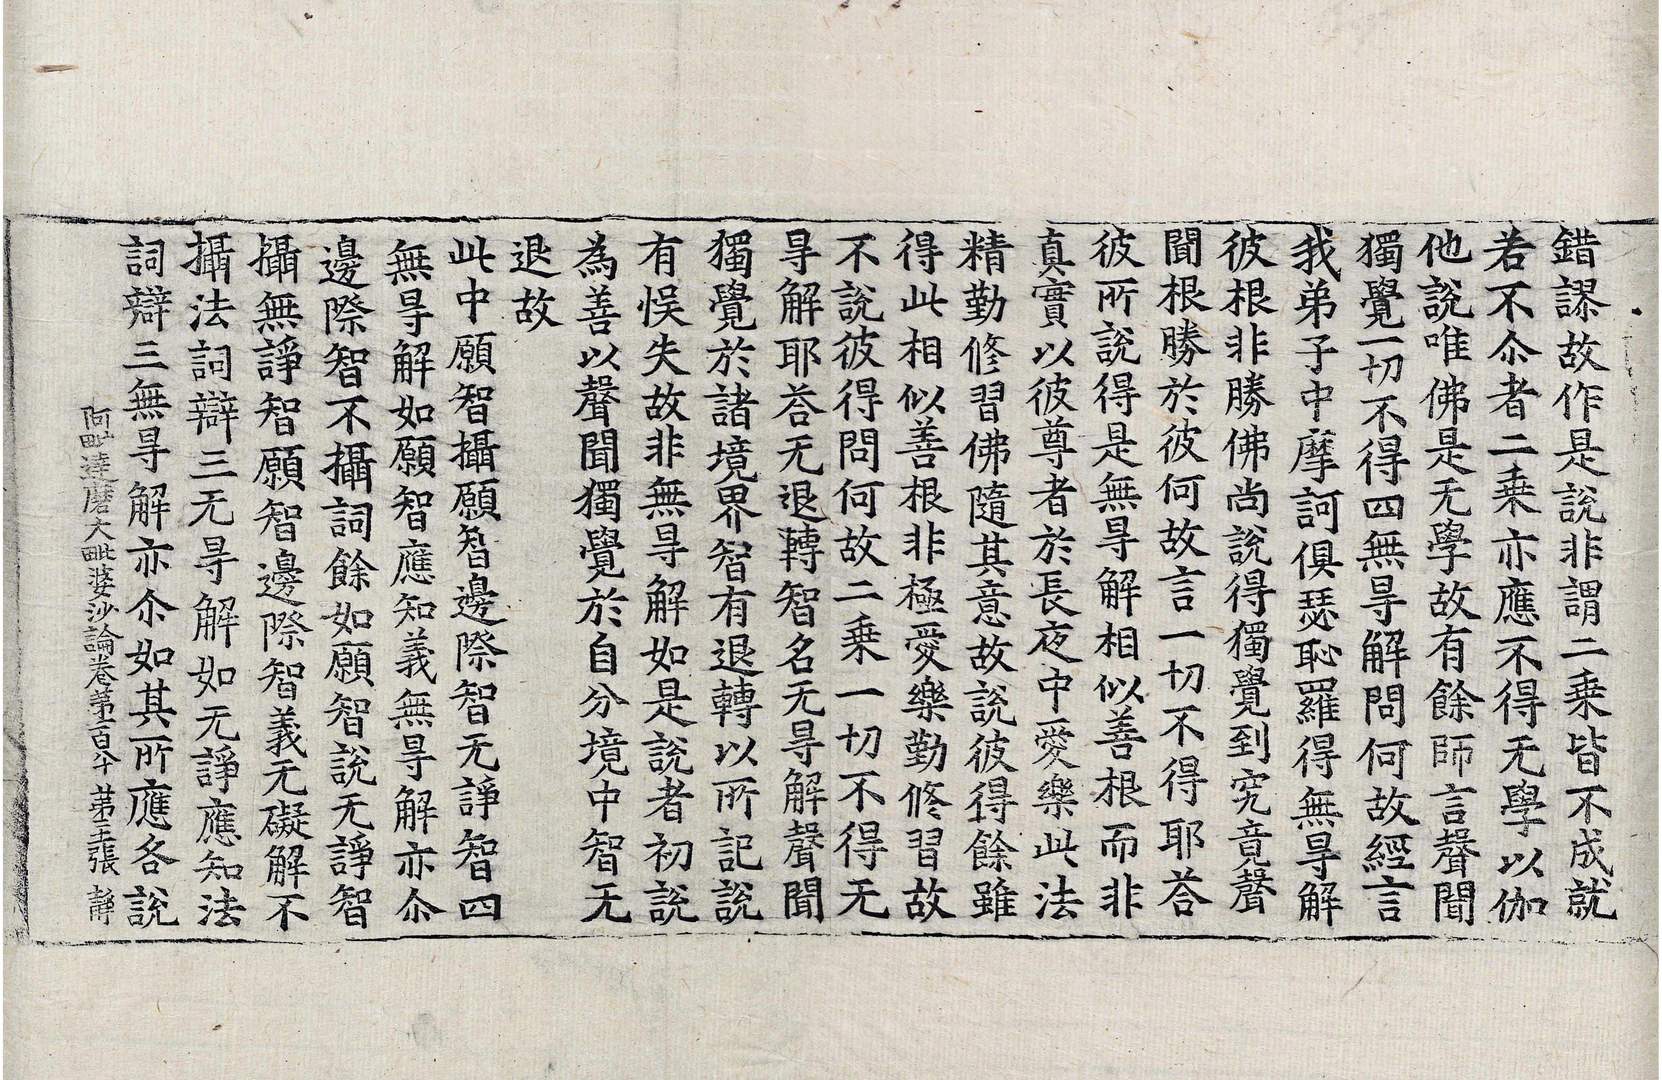 錯謬故作是說非謂二乗皆不成就
若不尒者二乗亦應不得无學以伽
他說唯佛是无學故有餘師言聲聞
獨覺一切不得四無㝵解問何故經言
我弟子中摩訶俱瑟恥羅得無㝵解
彼根非勝佛尚說得獨覺到究竟聲
聞根勝於彼何故言一切不得耶荅
彼所說得是無㝵解相似善根而非
真實以彼尊者於長夜中愛樂此法
精勤修習佛隨其意故說彼得餘雖
得此相似善根非極愛樂勤修習故
不說彼得問何故二乗一切不得无
㝵解耶荅无退轉智名无㝵解聲聞
獨覺於諸境界智有退轉以所記說
有悮失故非無㝵解如是說者初說
為善以聲聞獨覺於自分境中智无
退故
此中願智攝願智邊際智无諍智四
無㝵解如願智應知義無㝵解亦尒
邊際智不攝詞餘如願智說无諍智
攝無諍智願智邊際智義无礙解不
攝法詞辯三无㝵解如无諍應知法
詞辯三無㝵解亦尒如其所應各說
阿毗達磨大毗婆沙論卷第一百八十 第三張 靜